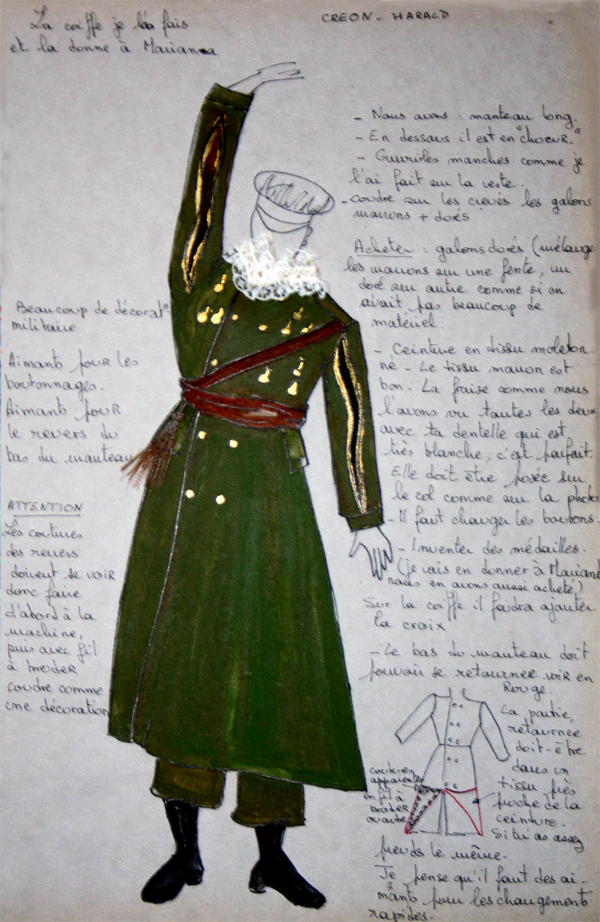 La coiffe je la fais
et la donne à Marianna
CREON - HARALD
- Nous avons : manteau long.
- En dessous il est en "choeur."
- Ouvrir les manches comme je
l'ai fait sur la veste.
- coudre sur les crevés les galons
marrons + dorés
Acheter : galons dorés (mélange
les marrons sur une fente, un
doré sur autre comme si on
avait pas beaucoup de
matériel.
- Ceinture en tissu moleton-
né - Le tissu marron est
bon. - La fraise comme nous
l'avons vu toutes les deux
avec ta dentelle qui est
très blanche, c'est parfait.
Elle doit être posée sur
le col comme sur la photo
- Il faut changer les boutons.
- Inventer des médailles.
(je vais en donner à Mariana
nous en avons aussi acheté)
Sur la coiffe il faudra ajouter
la croix
- Le bas du manteau doit
pouvoir se retourner voir en
Rouge.
La partie,
retournée
doit-être
dans un
tissu près
proche de la
ceinture.
Si tu as assez
prends le même.
Je pense qu'il faut des ai-
mants pour les changements
rapides.
Beaucoup de décorat°
militaire
Aimants pour les
boutonnages.
Aimants pour
le revers du
bas du manteau
ATTENTION
Les coutures
des revers
doivent se voir
donc faire
d'abord à la
machine,
puis avec fil
à broder
coudre comme
une décoration
coutures
apparentes
en fil à
broder